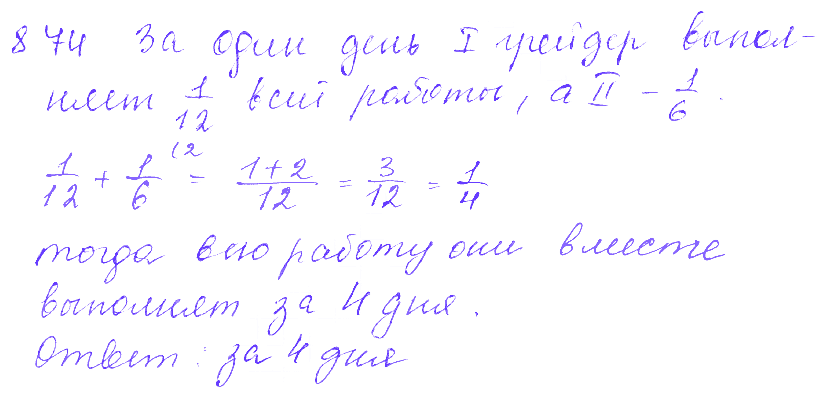 874 За один день I грейдер выпол-
няет 1/12 всей работы, а II – 1/6.
1/12 + 1/6 (2 = 1+2/12 = 3/12 = 1/4
тогда всю работу они вместе
выполнят за 4 дня.
Ответ: за 4 дня